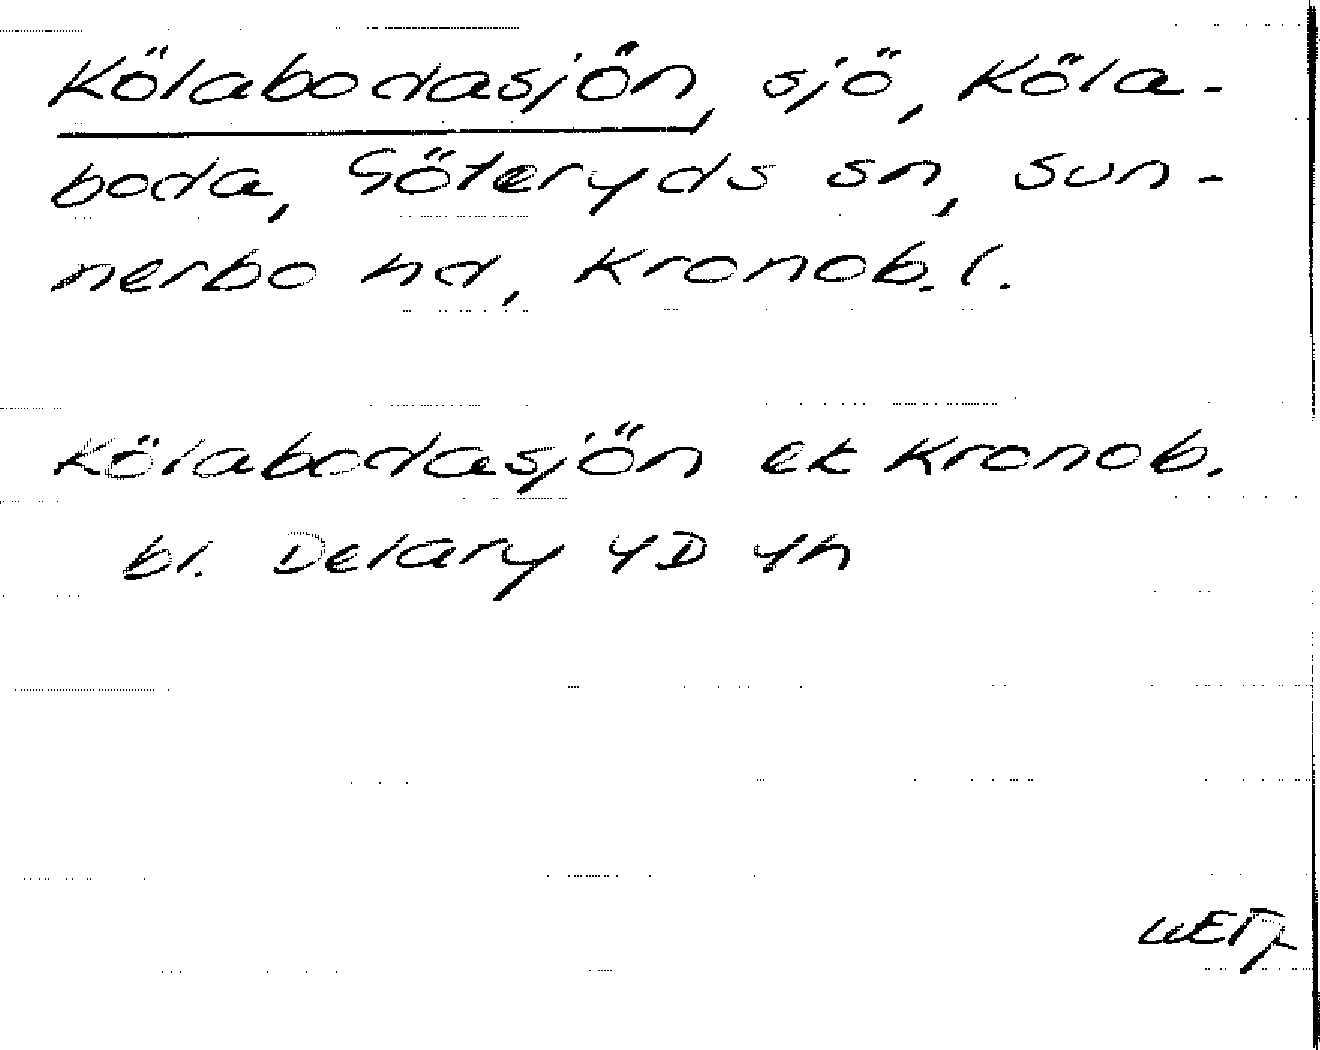 Kölabodasjön, sjö, Köla-
boda, Göteryds sn, Sun-
nerbo hd, Kronob. l.
Kölabodasjön ek Kronob.
bl. Delary 4D 4h